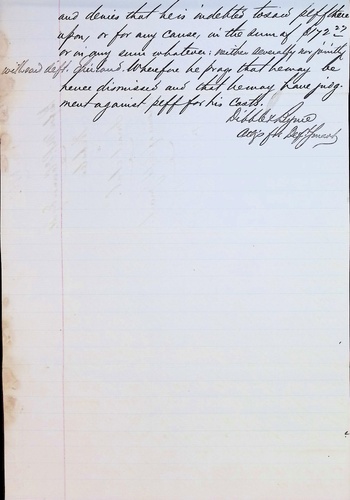 and denies that he is indebted to said plff there
upon, or for any cause, in the sum of $172
or in any sum whatever: neither severally, nor jointly
with said deft. Wherefore he prays that he may be
hence dismissed and that he may have judg-
ment against plff for his costs.
Dibble & Byrne
Attys for Deft